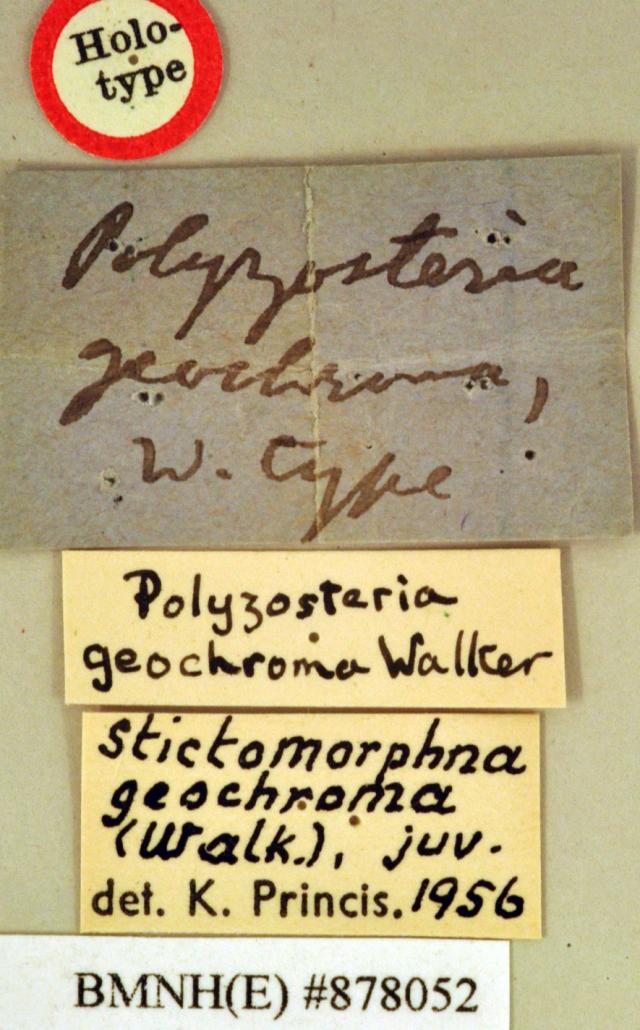 Holo-
type
Polyzosteria
geochroma,
W. type
Polyzosteria
geochroma Walker
Stictomorphna
geochroma
(Walk.), juv.
det. K. Princis. 1956
BMNH(E) #878052